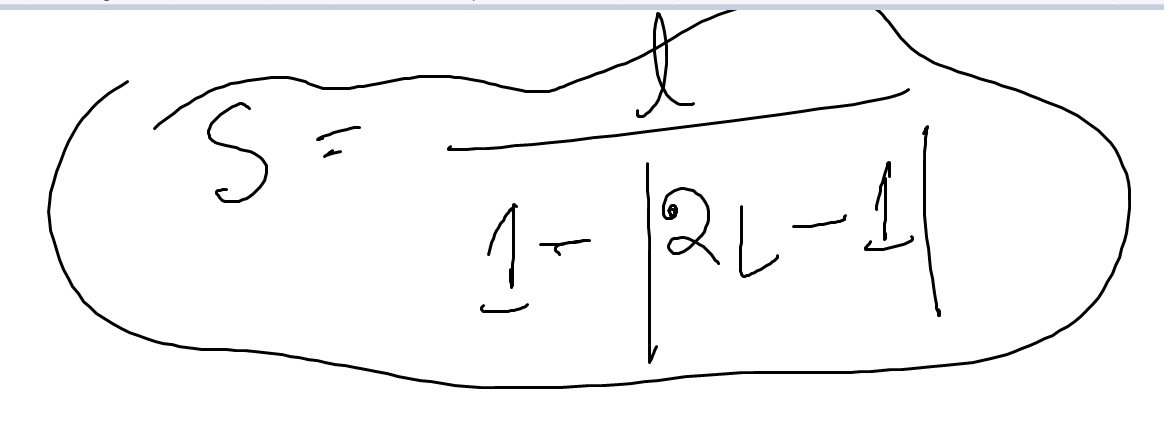 S = l / (1 - |2L - 1|)